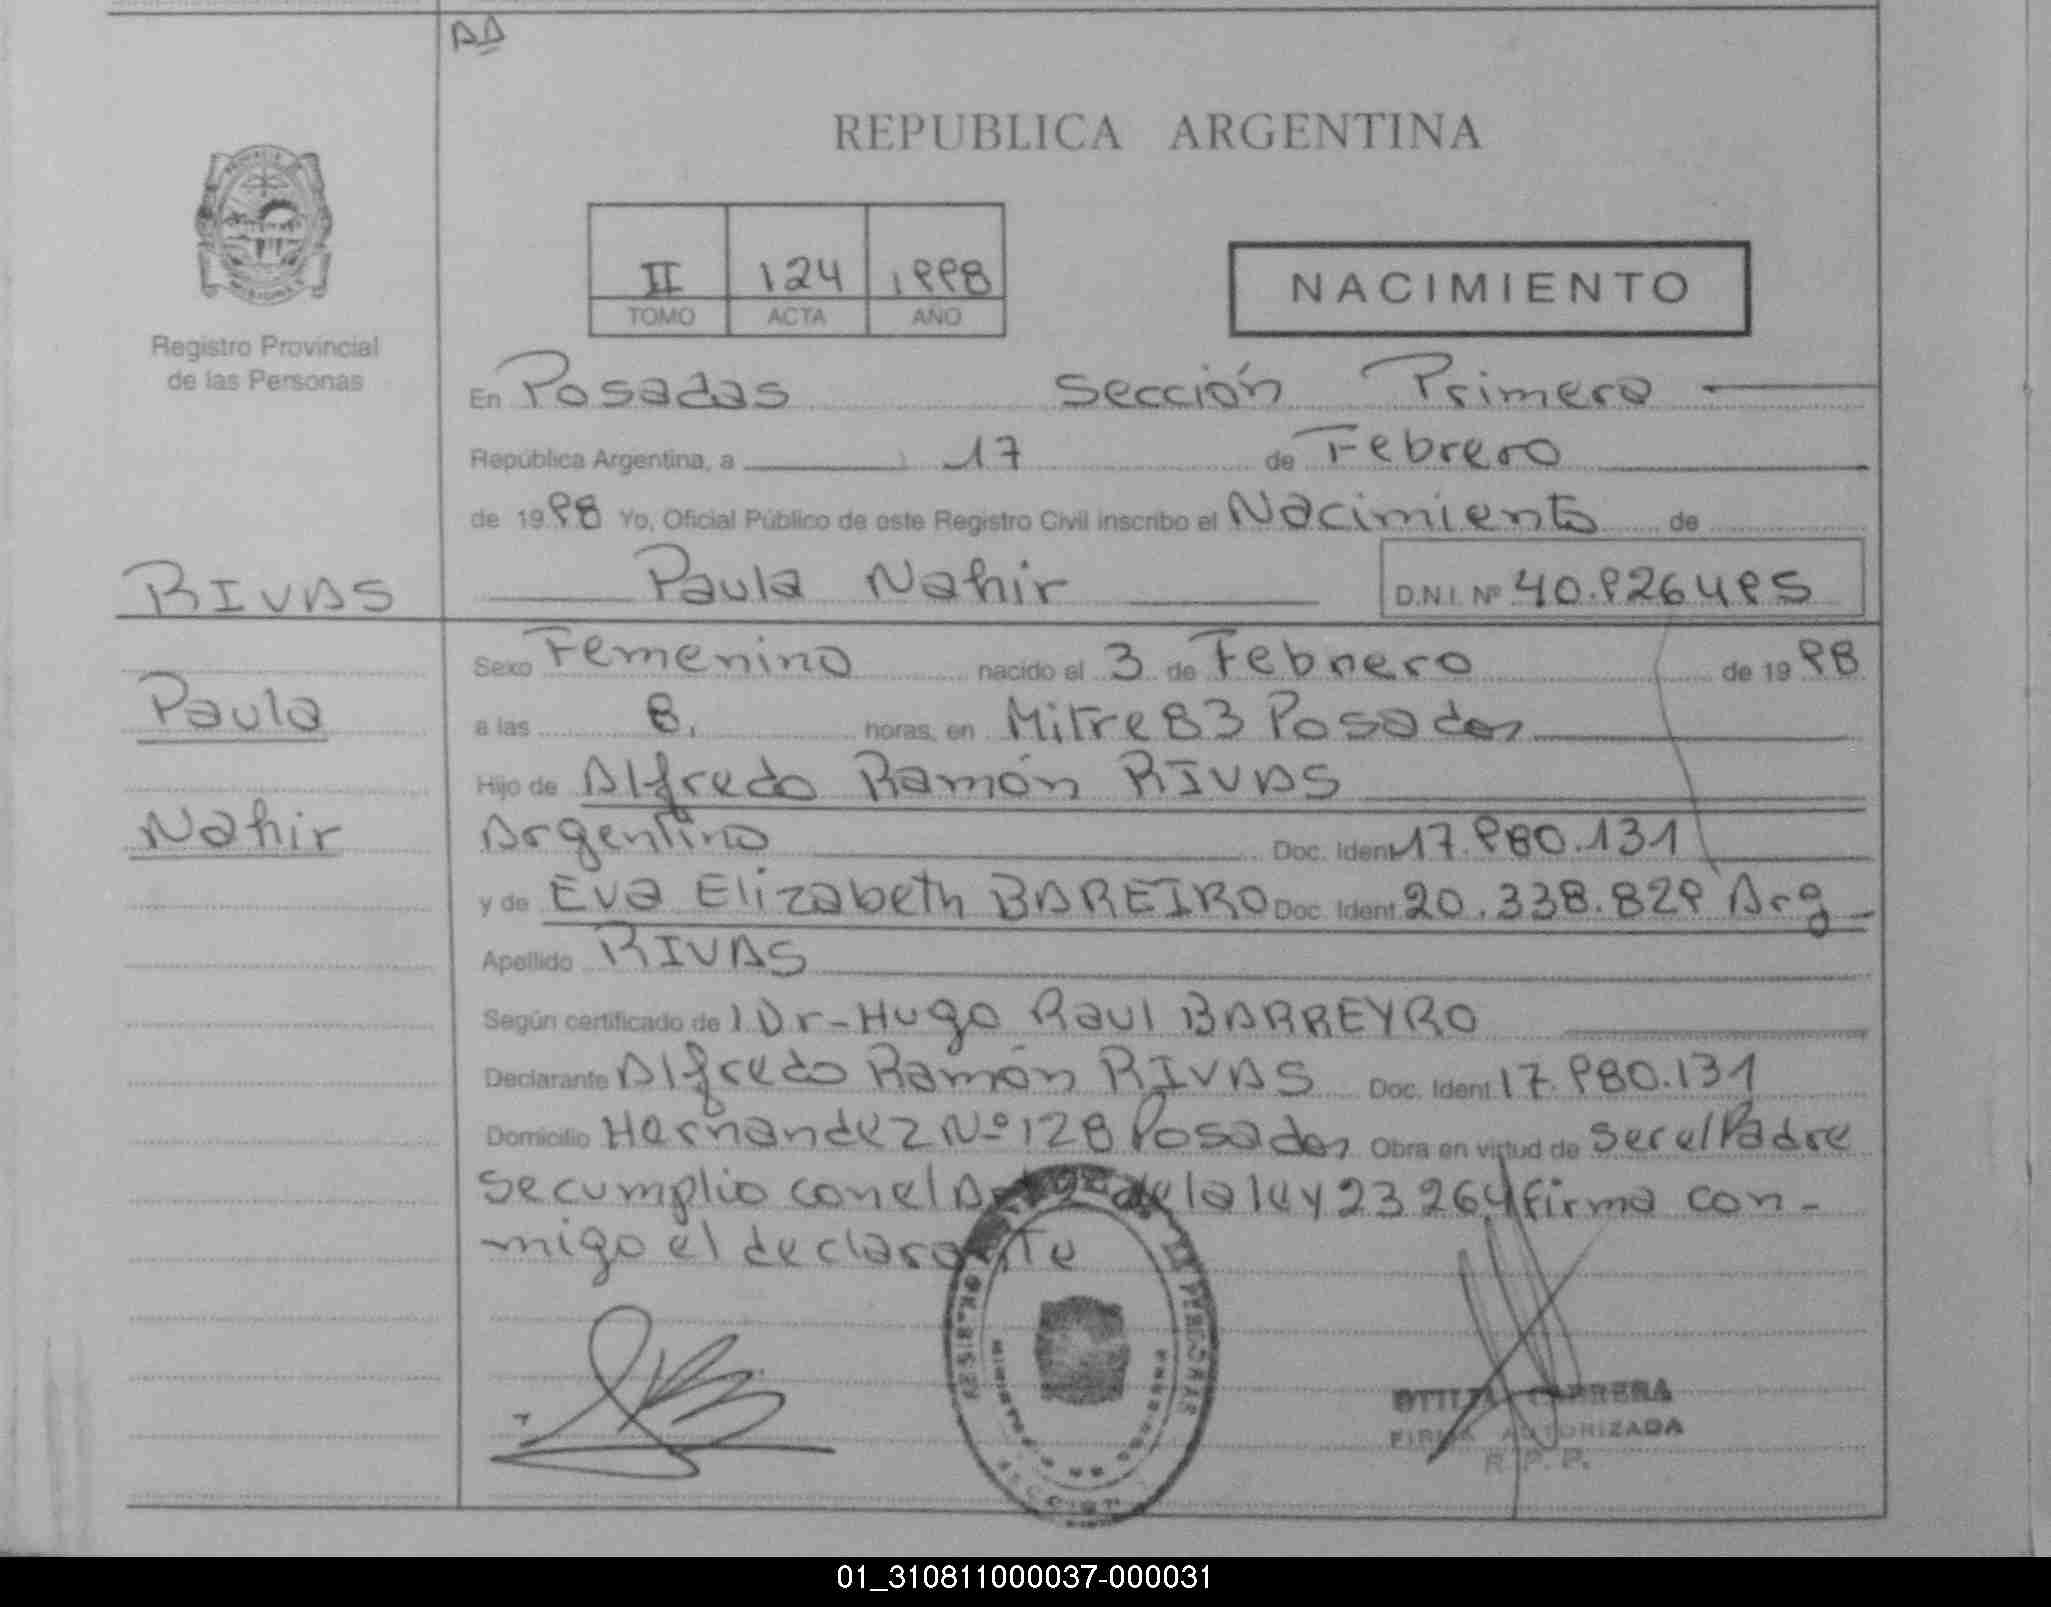 AA
REPUBLICA ARGENTINA
II 124 1998
TOMO ACTA AÑO
NACIMIENTO
Registro Provincial
de las Personas
En Posadas Sección Primera
República Argentina, a 17 de Febrero
de 1998 Yo, Oficial Público de este Registro Civil inscribo el Nacimiento de
RIVAS
Paula Nahir D.N.I. Nº 40.926495
Paula
Nahir
Sexo Femenino nacido el 3 de Febrero de 1998
a las 8. horas, en Mitre 83 Posadas
Hijo de Alfredo Ramón RIVAS
Argentino Doc. Ident 17.980.131
y de Eva Elizabeth BAREIRO Doc. Ident. 20.338.829 Arg
Apellido RIVAS
Según certificado de Dr-Hugo Raul BARREYRO
Declarante Alfredo Ramón RIVAS Doc. Ident 17.980.131
Domicilio Hernandez Nº 128 Posadas Obra en virtud de ser el Padre
se cumplio con el de la ley 23264 firma con-
migo el declarante
CABRERA
FIRMA AUTORIZADA
R. P. P.
01_310811000037-000031